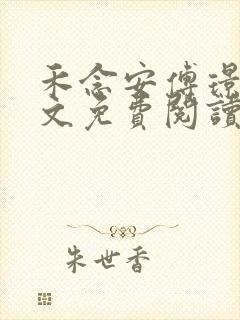 禾念安傅璟
文免費閱讀
朱世香